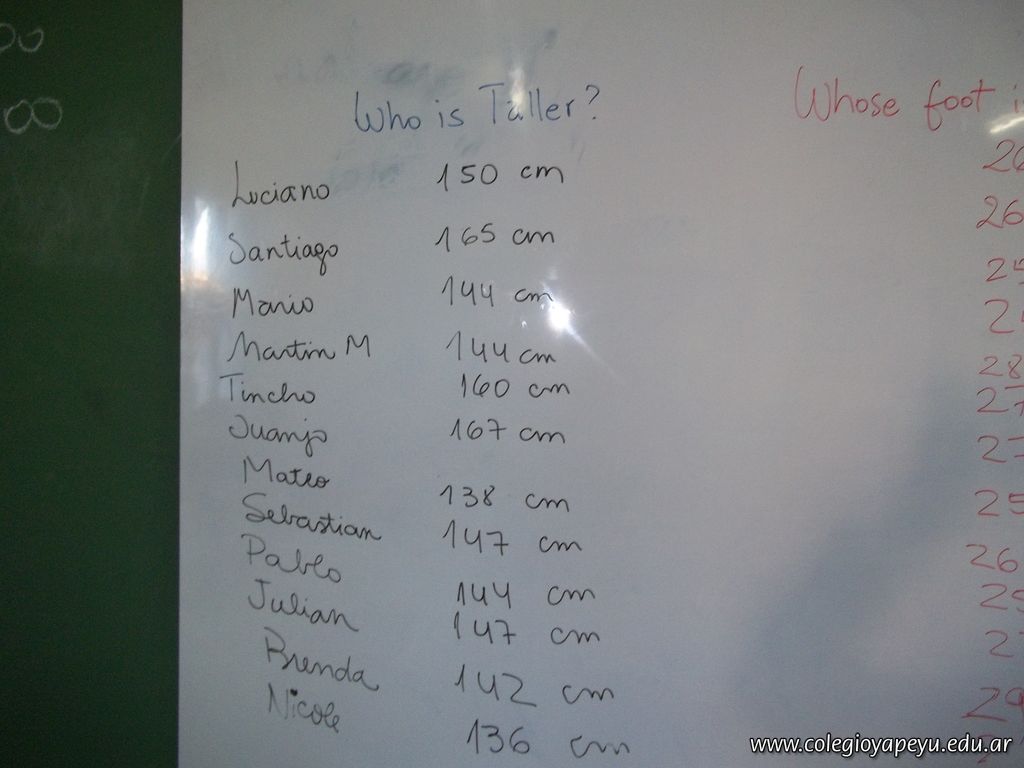 Who is Taller?
Luciano 150 cm
Santiago 165 cm
Mario 144 cm
Martin M 144 cm
Tincho 160 cm
Juanjo 167 cm
Mateo 138 cm
Sebastian 147 cm
Pablo 144 cm
Julian 147 cm
Brenda 142 cm
Nicole 136 cm
Whose foot
26
28
27
25
26
29
www.colegioyapeyu.edu.ar